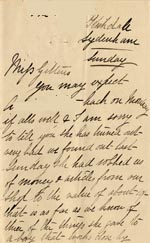 Sydenham
Sunday
Miss Gittens
You may expect
back on Monday
if all well & I am sorry
to tell you she has turned out
very bad we found out last
Sunday she had robbed us
of money & articles from our
Shop to the value of about
that is as far as we know of
some of the things she gave to
a boy that works close by